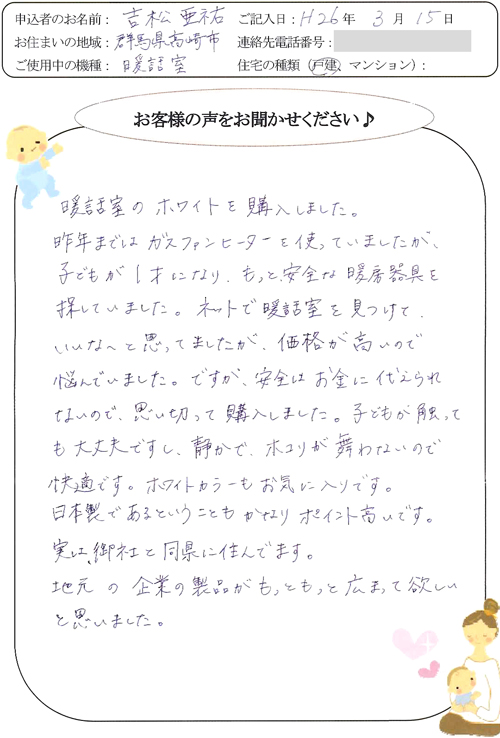 申込者のお名前: 吉松 亜祐 ご記入日:H26年 3月 15日
お住まいの地域: 群馬県高崎市 連絡先電話番号:
ご使用中の機種: 暖話室 住宅の種類 (戸建、マンション):
お客様の声をお聞かせください♪
暖話室の ホワイトを購入しました。
昨年までは ガスファンヒーターを使っていましたが、
子どもが1才になり、もっと安全な暖房器具を
探していました。ネットで暖話室を見つけて、
いいな〜と思ってましたが、価格が高いので
悩んでいました。ですが、安全はお金に代えられ
ないので、思い切って購入しました。子どもが触って
も大丈夫ですし、静かで、ホコリが舞わないので
快適です。ホワイトカラーもお気に入りです。
日本製であるということもかなりポイント高いです。
実は、御社と同県に住んでます。
地元の企業の製品がもっともっと広まって欲しい
と思いました。